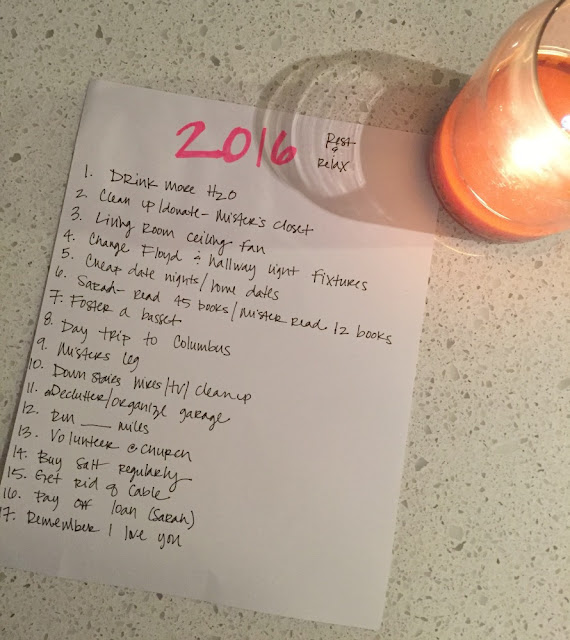 2016
Rest
&
Relax
1. Drink more H2O
2. Clean up/donate - Mister's closet
3. Living Room ceiling fan
4. Change Floyd & hallway light fixtures
5. Cheap date nights/home dates
6. Sarah - Read 45 books/Mister Read 12 books
7. Foster a basset
8. Day trip to Columbus
9. Misters leg
10. Down stairs wires/TV/clean up
11. Declutter/organize garage
12. Run ___ miles
13. Volunteer @ church
14. Buy salt regularly
15. Get rid of Cable
16. Pay off loan (Sarah)
17. Remember I love you